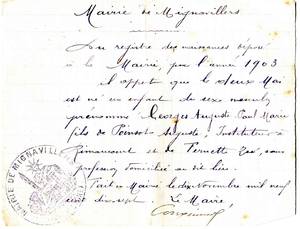 Mairie de Mignavillers
Du registre des naissances déposé
à la Mairie, pour l'année 1903
il appert que le deux Mai
est né un enfant du sexe masculin
prénommé Georges Auguste Paul Marie
fils de Poinsot Auguste, Instituteur à
et de Pernette sans
profession domiciliés au dit lieu.
Fait en Mairie le dix Novembre mil neuf
cent dix sept. Le Maire,
MAIRIE DE MIGNAVILLERS